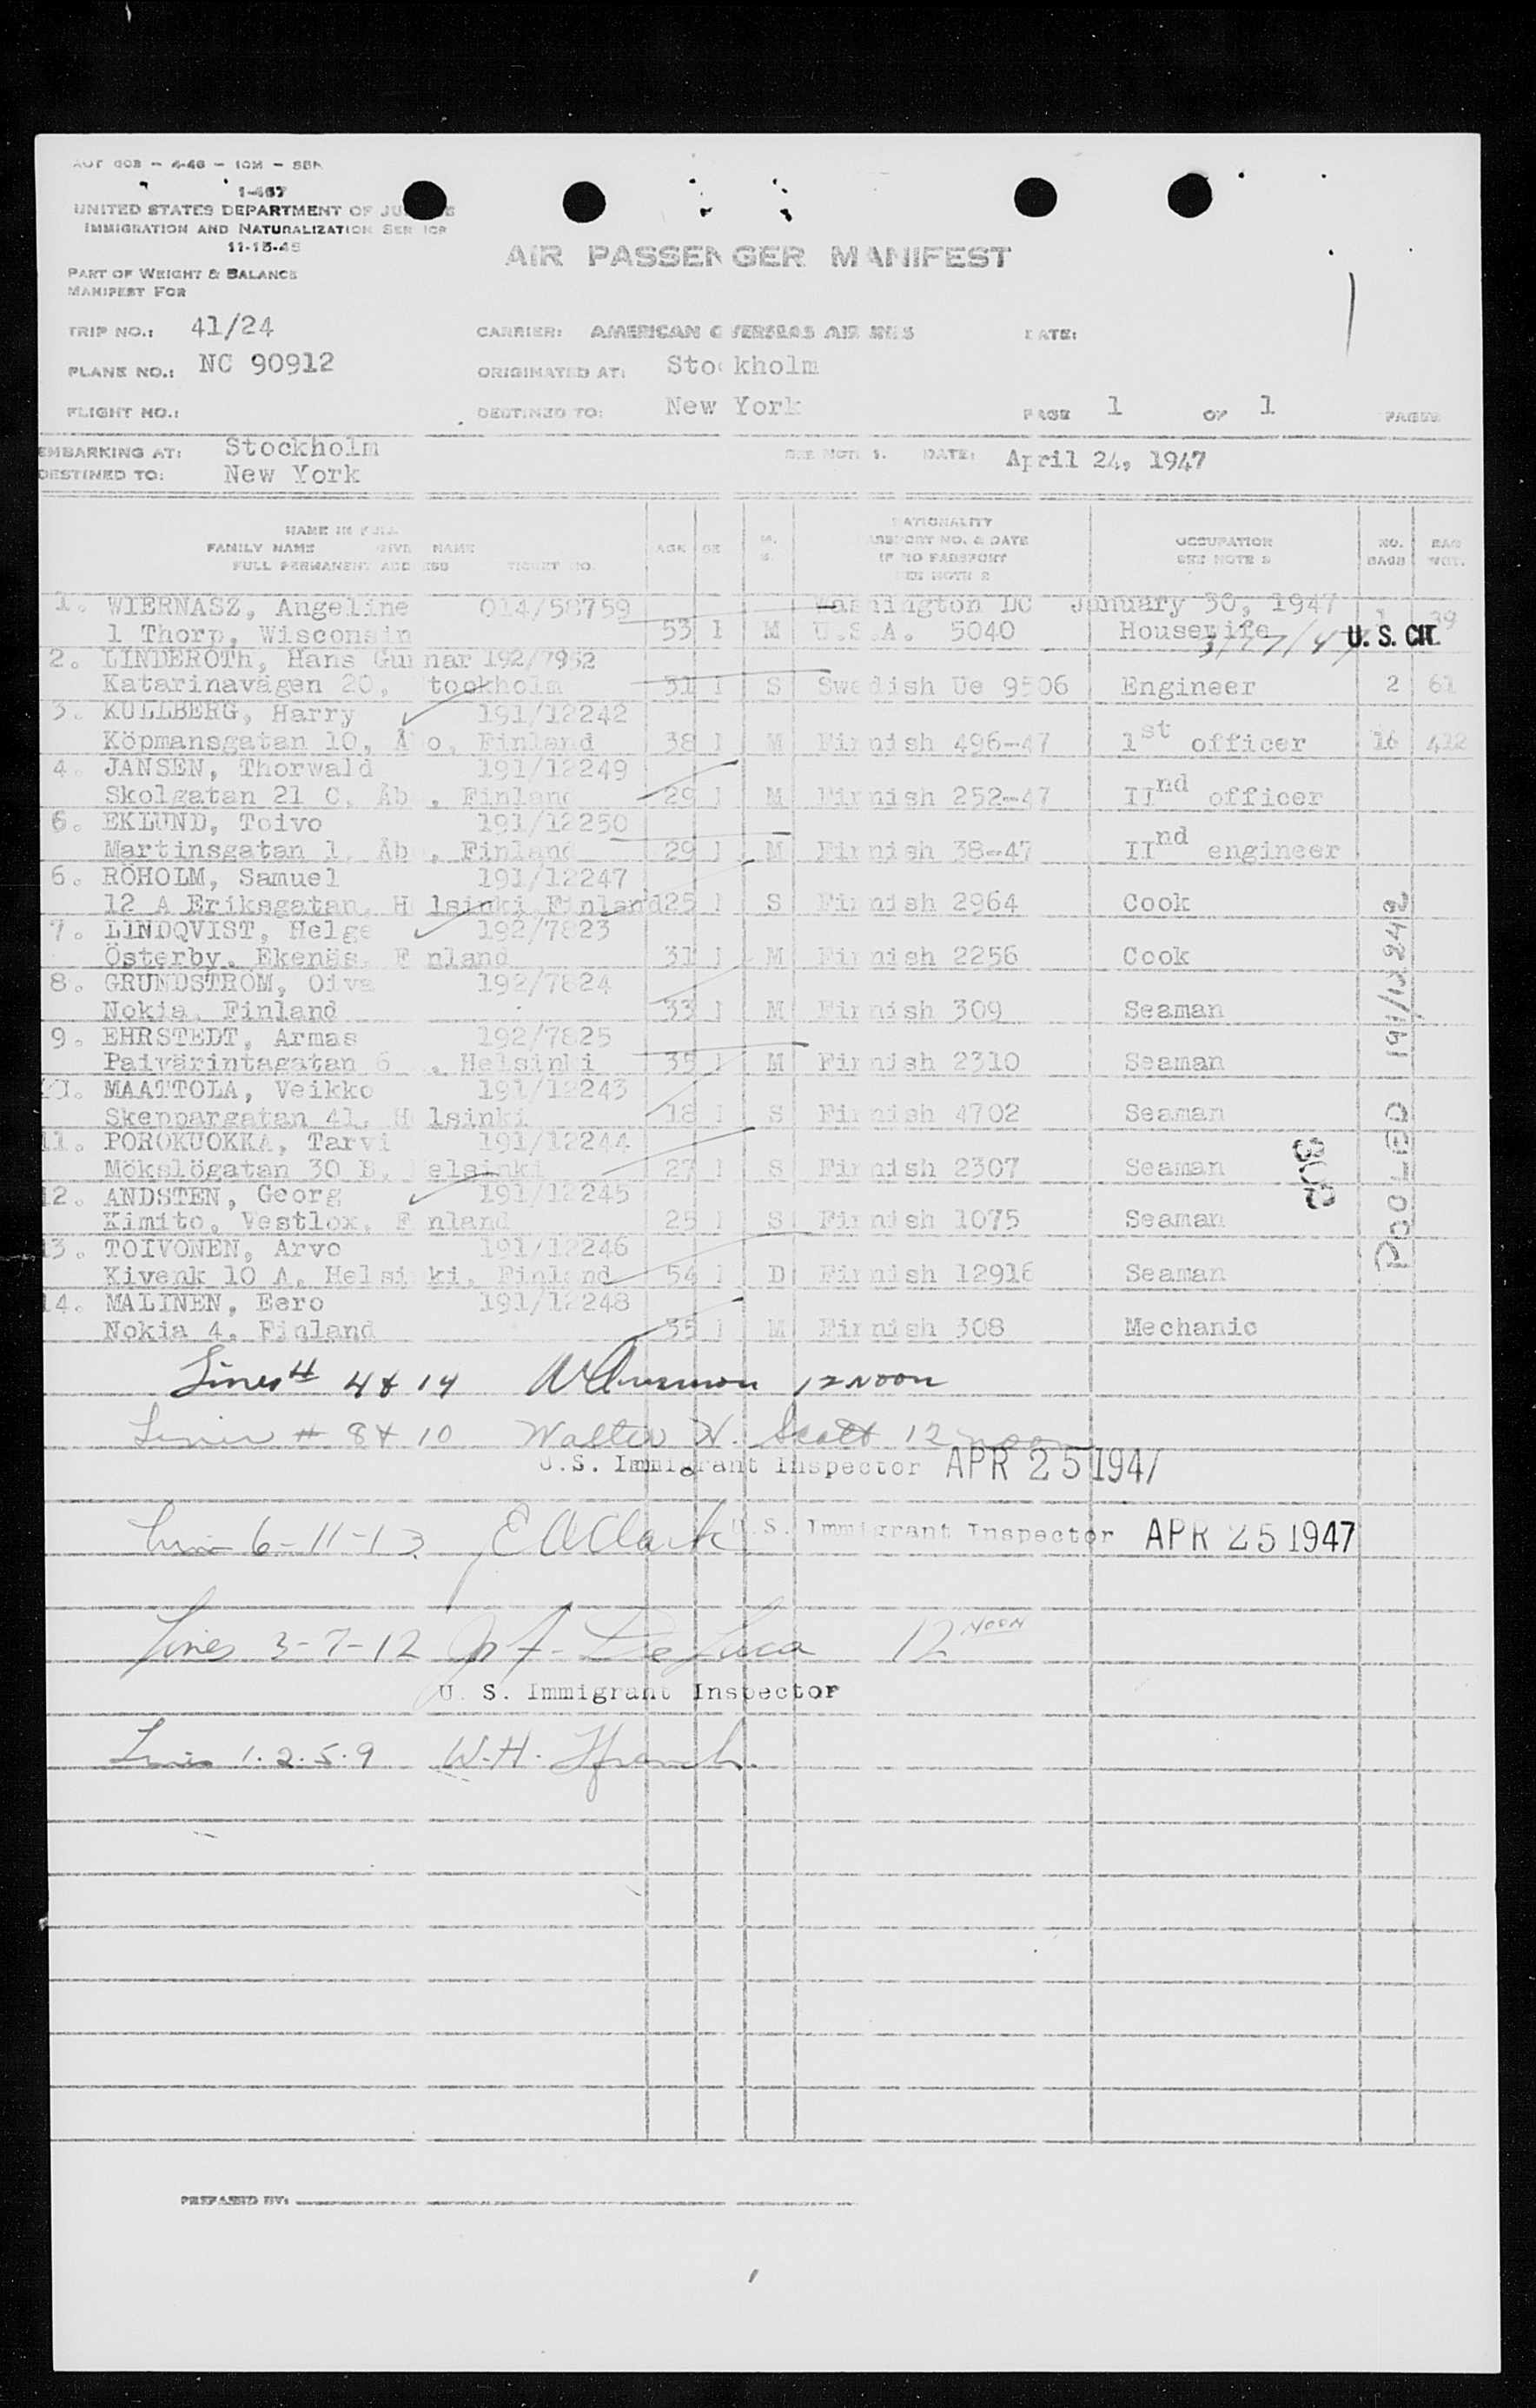 1-467
UNITED STATES DEPARTMENT OF JUSTICE
IMMIGRATION AND NATURALIZATION SERVICE
11-15-45
AIR PASSENGER MANIFEST
PART OF WEIGHT & BALANCE
MANIFEST FOR
TRIP NO.: 41/24 CARRIER: AMERICAN OVERSEAS AIRLINES DATE:
PLANE NO.: NC 90912 ORIGINATED AT: Stockholm
FLIGHT NO.: DESTINED TO: New York PAGE 1 OF 1 PAGES
EMBARKING AT: Stockholm SEE NOTE 1. DATE: April 24, 1947
DESTINED TO: New York
NAME IN FULL NATIONALITY
FAMILY NAME GIVEN NAME AGE SEX M. PASSPORT NO. & DATE OCCUPATION NO. BAG
FULL PERMANENT ADDRESS TICKET NO. S. IF NO PASSPORT SEE NOTE 2 BAGS WGT.
SEE NOTE 2
1. WIERNASZ, Angeline 014/58759 Washington DC January 30, 1947
1 Thorp, Wisconsin 53 M U.S.A. 5040 Housewife 1 39 U. S. CIT.
2. LINDEROTH, Hans Gunnar 192/7952
Katarinavägen 20, Stockholm 31 S Swedish Ue 9506 Engineer 2 61
3. KULLBERG, Harry 191/12242
Köpmansgatan 10, Åbo, Finland 38 M Finnish 496-47 1st officer 16 412
4. JANSEN, Thorwald 191/12249
Skolgatan 21 C, Åbo, Finland 29 M Finnish 252-47 IInd officer
6. EKLUND, Toivo 191/12250
Martinsgatan 1, Åbo, Finland 29 M Finnish 38-47 IInd engineer
6. ROHOLM, Samuel 191/12247
12 A Eriksgatan, Helsinki Finland 25 S Finnish 2964 Cook
7. LINDQVIST, Helge 192/7823
Österby, Ekenäs, Finland 31 M Finnish 2256 Cook
8. GRUNDSTROM, Oiva 192/7824
Nokia, Finland 33 M Finnish 309 Seaman
9. EHRSTEDT, Armas 192/7825
Paivärintagatan 6 , Helsinki 35 M Finnish 2310 Seaman
10. MAATTOLA, Veikko 191/12243
Skeppargatan 41, Helsinki 18 S Finnish 4702 Seaman
11. POROKUOKKA, Tarvi 191/12244
Mökslögatan 30 B, Helsinki 27 S Finnish 2307 Seaman
12. ANDSTEN, Georg 191/12245
Kimito, Vestlox, Finland 25 S Finnish 1075 Seaman
13. TOIVONEN, Arvo 191/12246
Kivenk 10 A, Helsinki, Finland 54 D Finnish 12916 Seaman
14. MALINEN, Eero 191/12248
Nokia 4, Finland 35 M Finnish 308 Mechanic
POOLED 191/12242
Lines # 4 & 14 12 NOON
Lines # 8 & 10 Walter W. Scott 12 noon
U.S. Immigrant Inspector APR 25 1947
Lines 6-11-13 E A Clark U.S. Immigrant Inspector APR 25 1947
Lines 3-7-12 De Luca 12 NOON
U. S. Immigrant Inspector
Lines 1.2.5.9 W.H.
PREPARED BY: